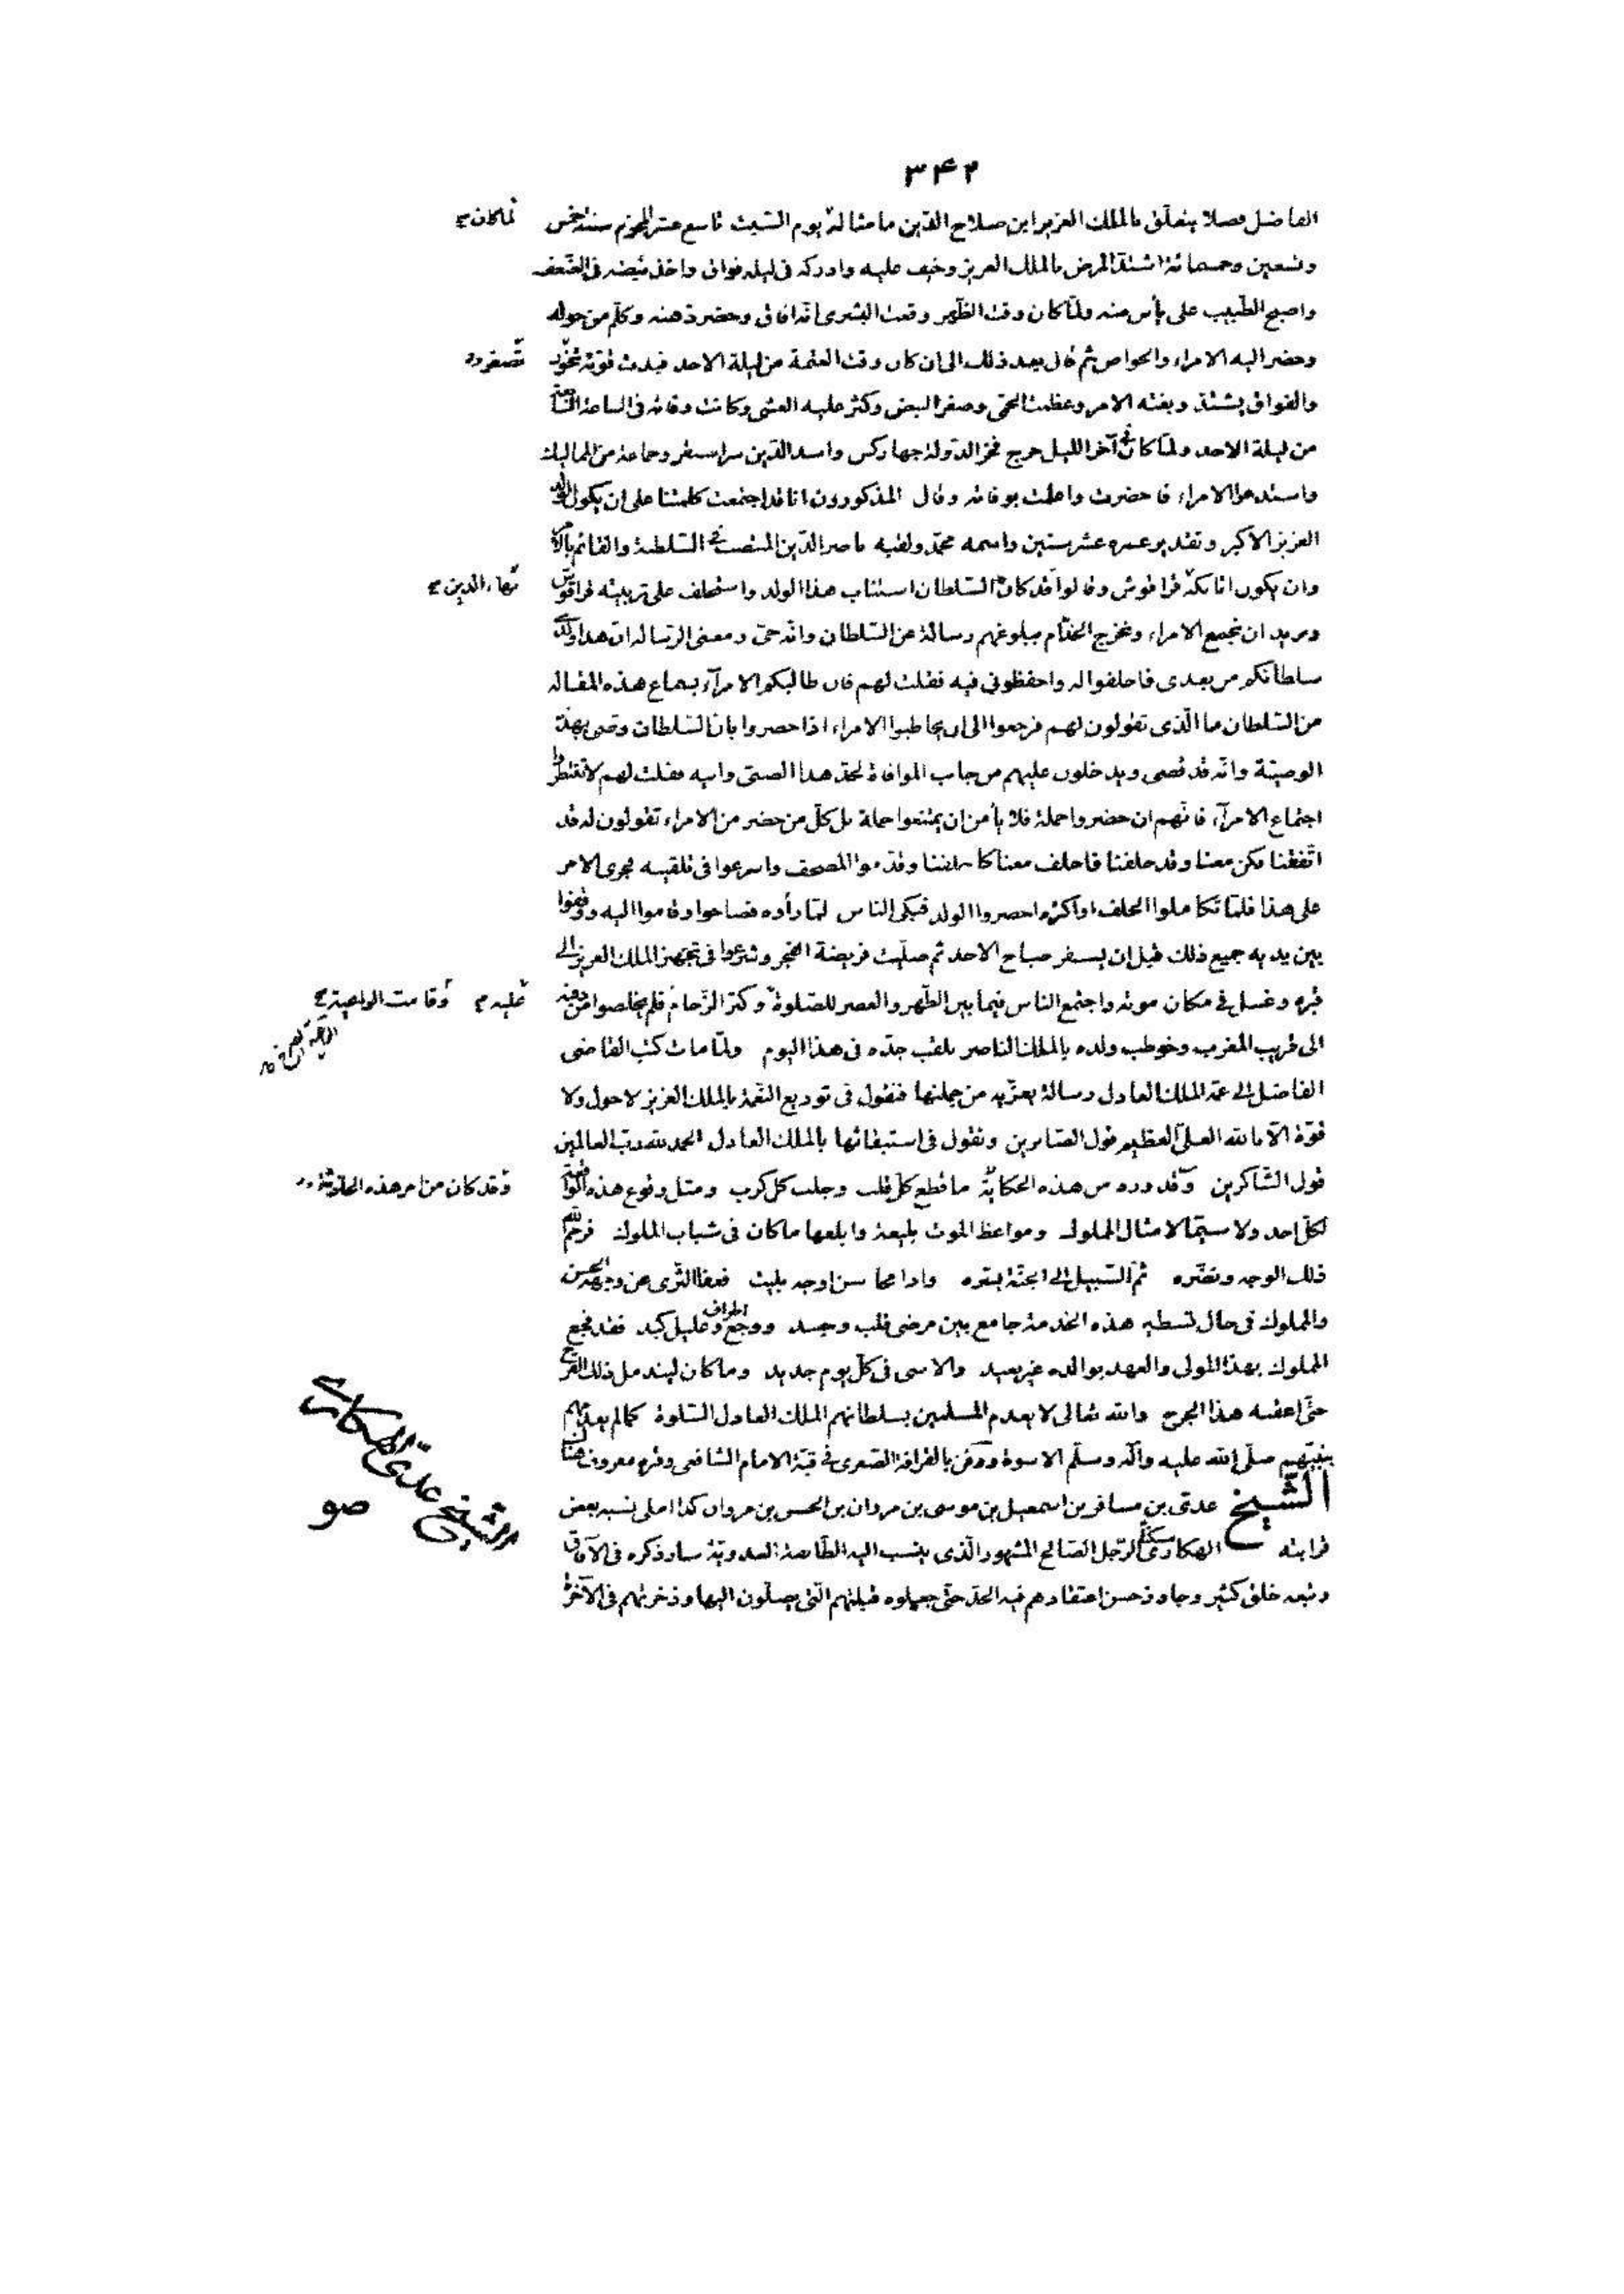 ۳۴۲
الفاضل فصلا يتعلق بالملك العزيز ابن صلاح الدين ما مثاله يوم السبت تاسع عشر المحرم سنة خمس
لما كان
وتسعين وخمسمائة اشتد المرض بالملك العزيز وخيف عليه وادركه فى ليله فواق واخذ نبضه فى الضعف
واصبح الطبيب على يأس منه ولما كان وقت الظهر وقعت البشرى انه افاق وحضر ذهنه وكلم من حوله
وحضر اليه الامراء والخواص ثم قال بعد ذلك الى ان كان وقت العتمة من ليلة الاحد فبدت قوته تخور
تصغر
والفواق يشتد وبغته الامر وعظمت الحمى وصغر النبض وكثر عليه الغشى وكانت وفاته فى الساعة السابعة
من ليلة الاحد ولما كان فى آخر الليل خرج فخر الدولة جهاركس واسد الدين سراسنقر وجماعة من المماليك
واستدعوا الامراء فاحضرت واعلمت بوفاته وقال المذكورون انا قد اجتمعت كلمتنا على ان يكون الولد
العزيز الاكبر وتقدير عمره عشر سنين واسمه محمد ولقبه ناصر الدين المنتصب فى السلطنة والقائم بالامر
وان يكون اتابكه قراقوش وقالوا قد كان السلطان استناب هذا الولد واستحلف على تربيته قراقوش
بهاء الدين
ونريد ان نجمع الامراء ونخرج الخدام يبلغونهم رسالة عن السلطان وانه حى ومعنى الرسالة ان هذا ولدى
سلطانكم من بعدى فاحلفوا له واحفظونى فيه فقلت لهم فان طالبكم الامرآء بسماع هذه المقالة
من السلطان ما الذى تقولون لهم فرجعوا الى ان يخاطبوا الامراء اذا حضروا بان السلطان وصى بهذه
الوصية وانه قد قضى ويدخلون عليهم من جانب الموافاة لجد هذا الصبى وابيه فقلت لهم لا تنتظروا
اجتماع الامرآء فانهم ان حضروا جملة فلا يأمن ان يمتنعوا جملة بل كل من حضر من الامراء تقولون له قد
اتفقنا فكن معنا وقد حلفنا فاحلف معنا كما حلفنا وقدموا المصحف واسرعوا فى تلقينه فجرى الامر
على هذا فلما تكاملوا الحلف او اكثره احضروا الولد فبكى الناس لما رأوه فصاحوا وقاموا اليه ووقفوا
بين يديه جميع ذلك قبل ان يسفر صباح الاحد ثم صليت فريضة الفجر وشرعوا فى تجهيز الملك العزيز الى
قبره وغسل فى مكان موته واجتمع الناس فيما بين الظهر والعصر للصلوة وكثر الزحام فلم يخلصوا من دفنه
عليه وقامت الواعية
الى قريب المغرب وخوطب ولده بالملك الناصر بلقب جده فى هذا اليوم ولما مات كتب القاضى
الفاضل الى عمه الملك العادل رسالة يعزيه من جملتها فنقول فى توديع النعمة بالملك العزيز لا حول ولا
قوة الا بالله العلى العظيم قول الصابرين ونقول فى استبقائها بالملك العادل الحمد لله رب العالمين
قول الشاكرين وقد ورد من هذه الحكاية ما قطع كل قلب وجلب كل كرب ومثل وقوع هذه الواقعة
وقد كان من امر هذه الحادثة
لكل احد ولا سيما لامثال المملوك ومواعظ الموت بليغة وابلغها ما كان فى شباب الملوك فرحم الله
ذلك الوجه ونضره ثم السبيل الى الجنة يسره واذا محاسن اوجه بليت فعفا الثرى عن وجهه الحسن
والمملوك فى حال تسطير هذه الخدمة جامع بين مرضى قلب وجسد ووجع اطراف وغليل كبد فقد فجع
المملوك بهذا المولى والعهد بوالده غير بعيد والاسى فى كل يوم جديد وما كان ليندمل ذلك القرح
حتى اعقبه هذا الجرح والله تعالى لا يعدم المسلمين بسلطانهم الملك العادل السلوة كما لم يعدمهم
بنبيهم صلى الله عليه وآله وسلم الاسوة ودفن بالقرافة الصغرى فى قبة الامام الشافعى وقبره معروف هناك
الشيخ عدى بن مسافر بن اسمعيل بن موسى بن مروان بن الحسن بن مروان كذا املى نسبه بعض
الشيخ عدى الهكارى
صو
قرابته الهكارى مسكنا الرجل الصالح المشهور الذى ينسب اليه الطائفة العدوية سار ذكره فى الآفاق
وتبعه خلق كثير وجاوز حسن اعتقادهم فيه الحد حتى جعلوه قبلتهم التى يصلون اليها وذخرتهم فى الآخرة